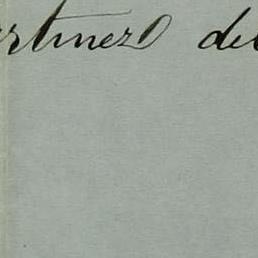 rtinez de